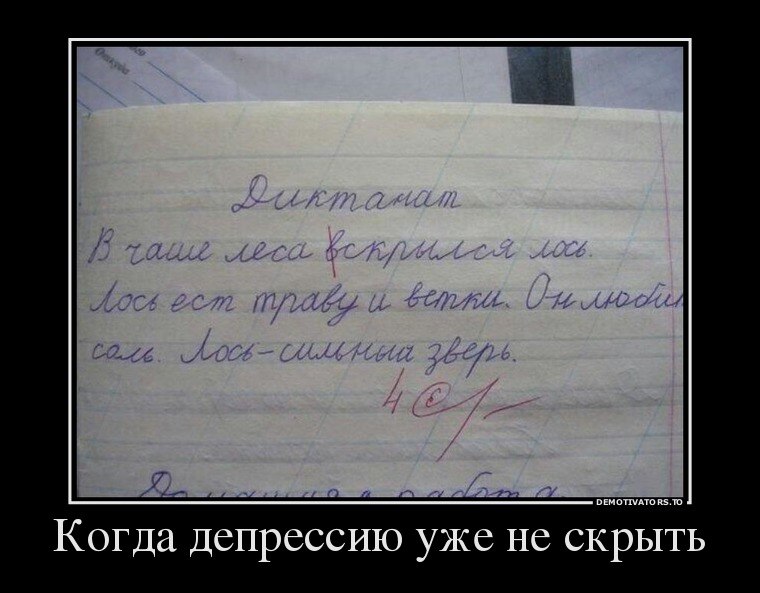 Откуда
Диктанат
В чаше леса вскрылся лось.
Лось ест траву и ветки. Он любит
соль. Лось-сильный зверь.
4 С/-
Домашняя работа
DEMOTIVATORS.TO
Когда депрессию уже не скрыть